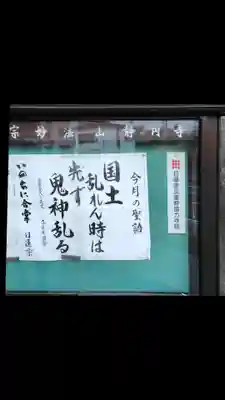 宗妙法山静円寺
今月の聖語
国土
乱れん時は
先ず
鬼神乱る
いのちに合掌 日蓮宗